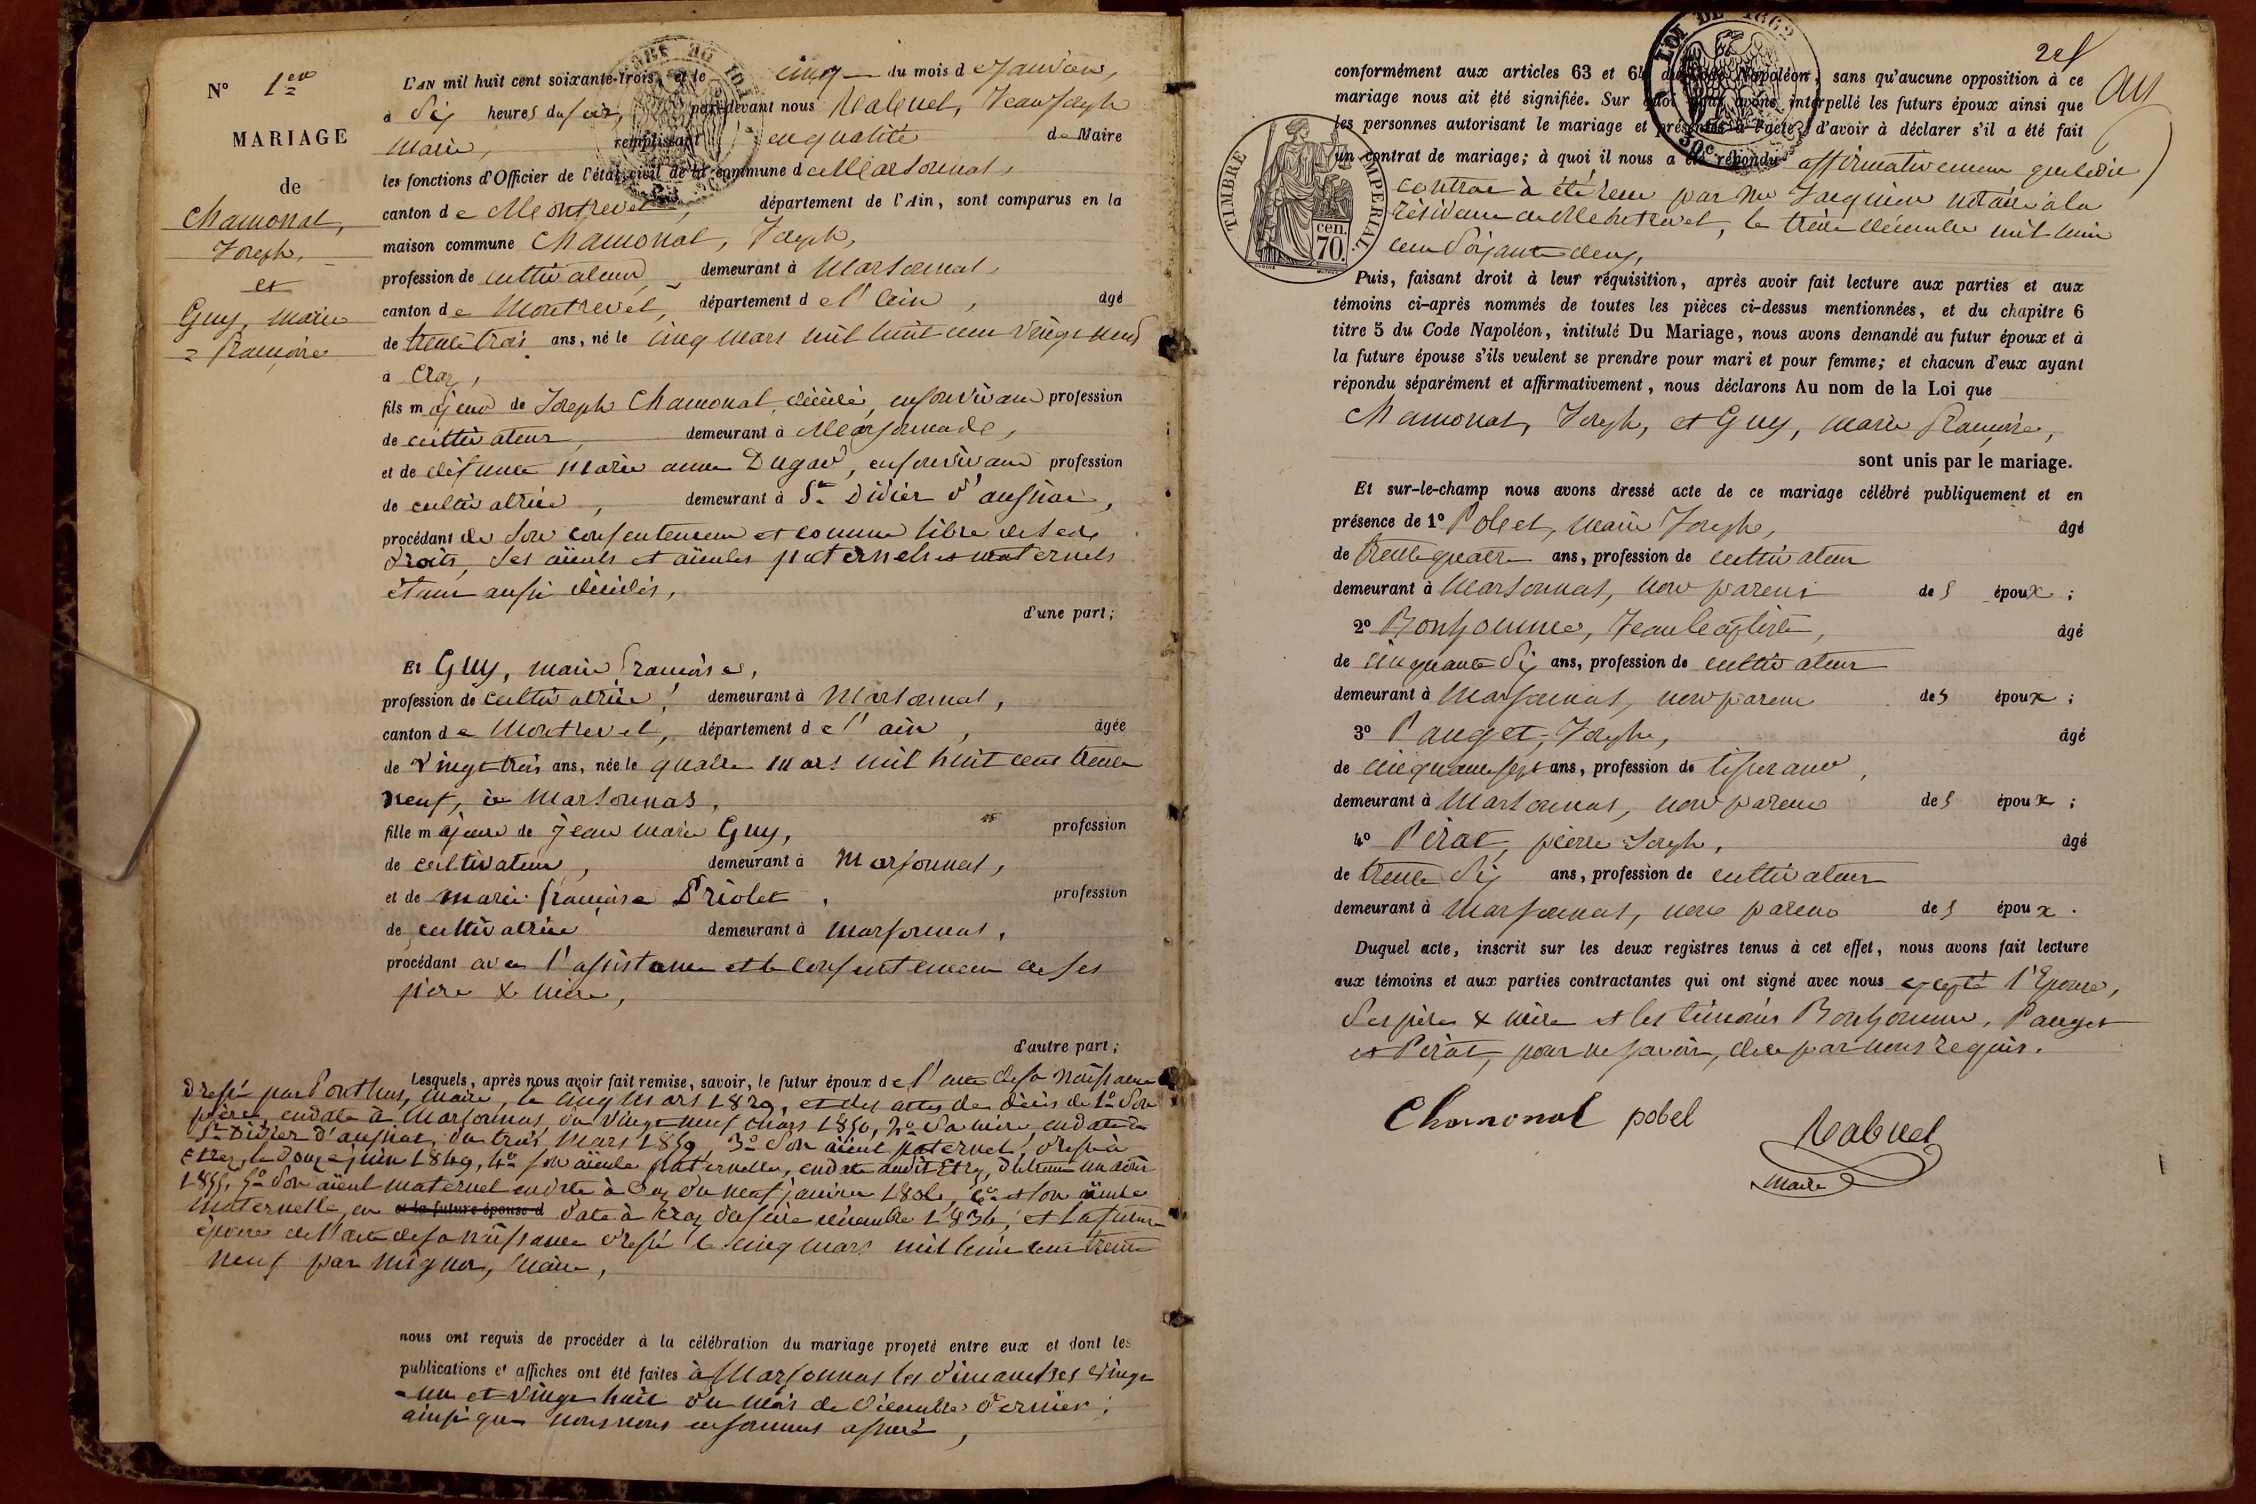 N° 1er
MARIAGE
de
Chamonal,
Joseph,
et
Guy, marie
= françoise
L'AN mil huit cent soixante-trois, et le cinq du mois de Janvier,
à Six heures du soir, par-devant nous Rabuel, Jean Joseph
Marie, remplissant en qualité de Maire
les fonctions d'Officier de l'état civil de la commune de Marsonnas,
canton de Montrevel, département de l'Ain, sont comparus en la
maison commune Chamonal, Joseph,
profession de cultivateur, demeurant à Marsonnas,
canton de Montrevel, département de l'ain, âgé
de trente trois ans, né le cinq mars mil huit cent vingt neuf
à Craz,
fils majeur de Joseph Chamonal, décédé, en son vivant profession
de cultivateur, demeurant à Marsonnas,
et de défunte marie anne Dugad, en son vivant profession
de cultivatrice, demeurant à St Didier d'aussiat,
procédant de son consentement et comme libre de ses
droits, ses aïeuls et aïeules paternels et maternels
étant aussi décédés,
d'une part;
Et Guy, marie françoise,
profession de cultivatrice, demeurant à Marsonnas,
canton de Montrevel, département de l'ain, âgée
de vingt trois ans, née le quatre mars mil huit cent trente
neuf, à Marsonnas,
fille majeure de jean marie Guy, profession
de cultivateur, demeurant à Marsonnas,
et de marie françoise Priolet, profession
de cultivatrice demeurant à marsonnas,
procédant avec l'assistance et le consentement de ses
père & mère,
d'autre part;
Lesquels, après nous avoir fait remise, savoir, le futur époux de l'acte de sa naissance
dressé par Ponthus, maire, le cinq mars 1829, et des actes de décès de 1° Son
père, en date à Marsonnas, du vingt neuf mars 1850, 2° Sa mère en date à
St Didier d'aussiat, du trois mars 1859, 3° Son aïeul paternel, dressé à
Etrez, le douze juin 1849, 4° son aïeule paternelle, en date audit Etrez, du
1855, 5° Son aïeul maternel en date à Craz du neuf janvier 6° et son aïeule
maternelle, en et la future épouse d date à Craz du seize décembre 1836, et la future
épouse de l'acte de sa naissance dressé le cinq mars mil huit cent trente
neuf par Mignot, maire,
nous ont requis de procéder à la célébration du mariage projeté entre eux et dont les
publications et affiches ont été faites à Marsonnas les dimanches vingt
un et vingt huit du mois de décembre dernier,
ainsi que nous nous en sommes assuré,
conformément aux articles 63 et 64 du Code Napoléon, sans qu'aucune opposition à ce
mariage nous ait été signifiée. Sur quoi nous avons interpellé les futurs époux ainsi que
les personnes autorisant le mariage et présentes à l'acte, d'avoir à déclarer s'il a été fait
un contrat de mariage; à quoi il nous a été répondu affirmativement que ledit
contrat à été reçu par Me Jacquier notaire à la
résidence de Montrevel, le treize décembre mil huit
cent soixante deux,
TIMBRE IMPERIAL.
cen.
70.
LOI DE 1862
50c
Puis, faisant droit à leur réquisition, après avoir fait lecture aux parties et aux
témoins ci-après nommés de toutes les pièces ci-dessus mentionnées, et du chapitre 6
titre 5 du Code Napoléon, intitulé Du Mariage, nous avons demandé au futur époux et à
la future épouse s'ils veulent se prendre pour mari et pour femme; et chacun d'eux ayant
répondu séparément et affirmativement, nous déclarons Au nom de la Loi que
Chamonal, Joseph, et Guy, marie françoise,
sont unis par le mariage.
Et sur-le-champ nous avons dressé acte de ce mariage célébré publiquement et en
présence de 1° Pobel, marie Joseph, âgé
de trente quatre ans, profession de cultivateur
demeurant à Marsonnas, non parent des époux;
2° Bonhomme, Jean baptiste, âgé
de cinquante Six ans, profession de cultivateur
demeurant à Marsonnas, non parent des époux;
3° Pauget, Joseph, âgé
de cinquante sept ans, profession de tisserand,
demeurant à Marsonnas, non parent des époux;
4° Pérat, pierre Joseph, âgé
de trente Six ans, profession de cultivateur
demeurant à Marsonnas, non parent des époux.
Duquel acte, inscrit sur les deux registres tenus à cet effet, nous avons fait lecture
aux témoins et aux parties contractantes qui ont signé avec nous excepté l'Epouse,
Ses père & mère et les témoins Bonhomme, Pauget
et Pérat, pour ne savoir, de ce par nous requis.
Chamonal pobel Rabuel
Maire